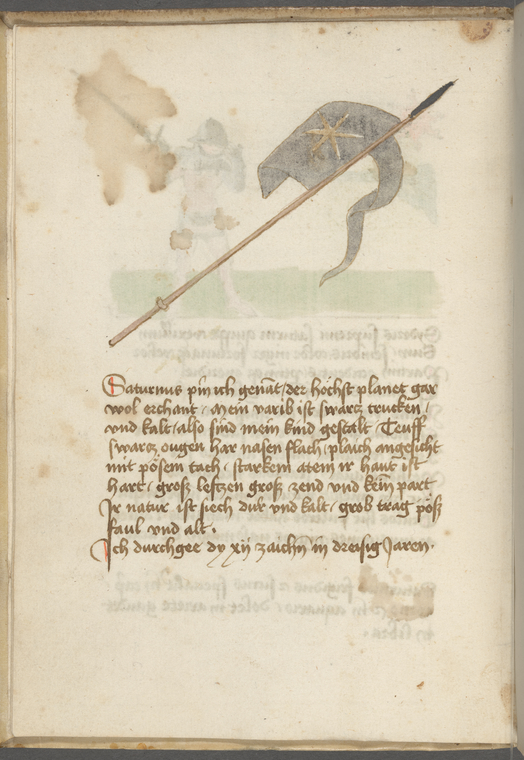 Saturnus pin ich genāt / der hochst planet gar
wol erchant / mein varib ist swarcz trucken /
vnd kalt / also sind mein kind gestalt / Teuff
swarcz ougen har nasen flach / plaich angesicht
mit pösem tach / starkem atem ir haut ist
hart / grosz lefczen grosz zend vnd kein part
Jr natur ist siech dür vnd kalt / grob trag pösz
faul vnd alt .
Jch durchgee dy xij zaichn in dreisig Jaren .